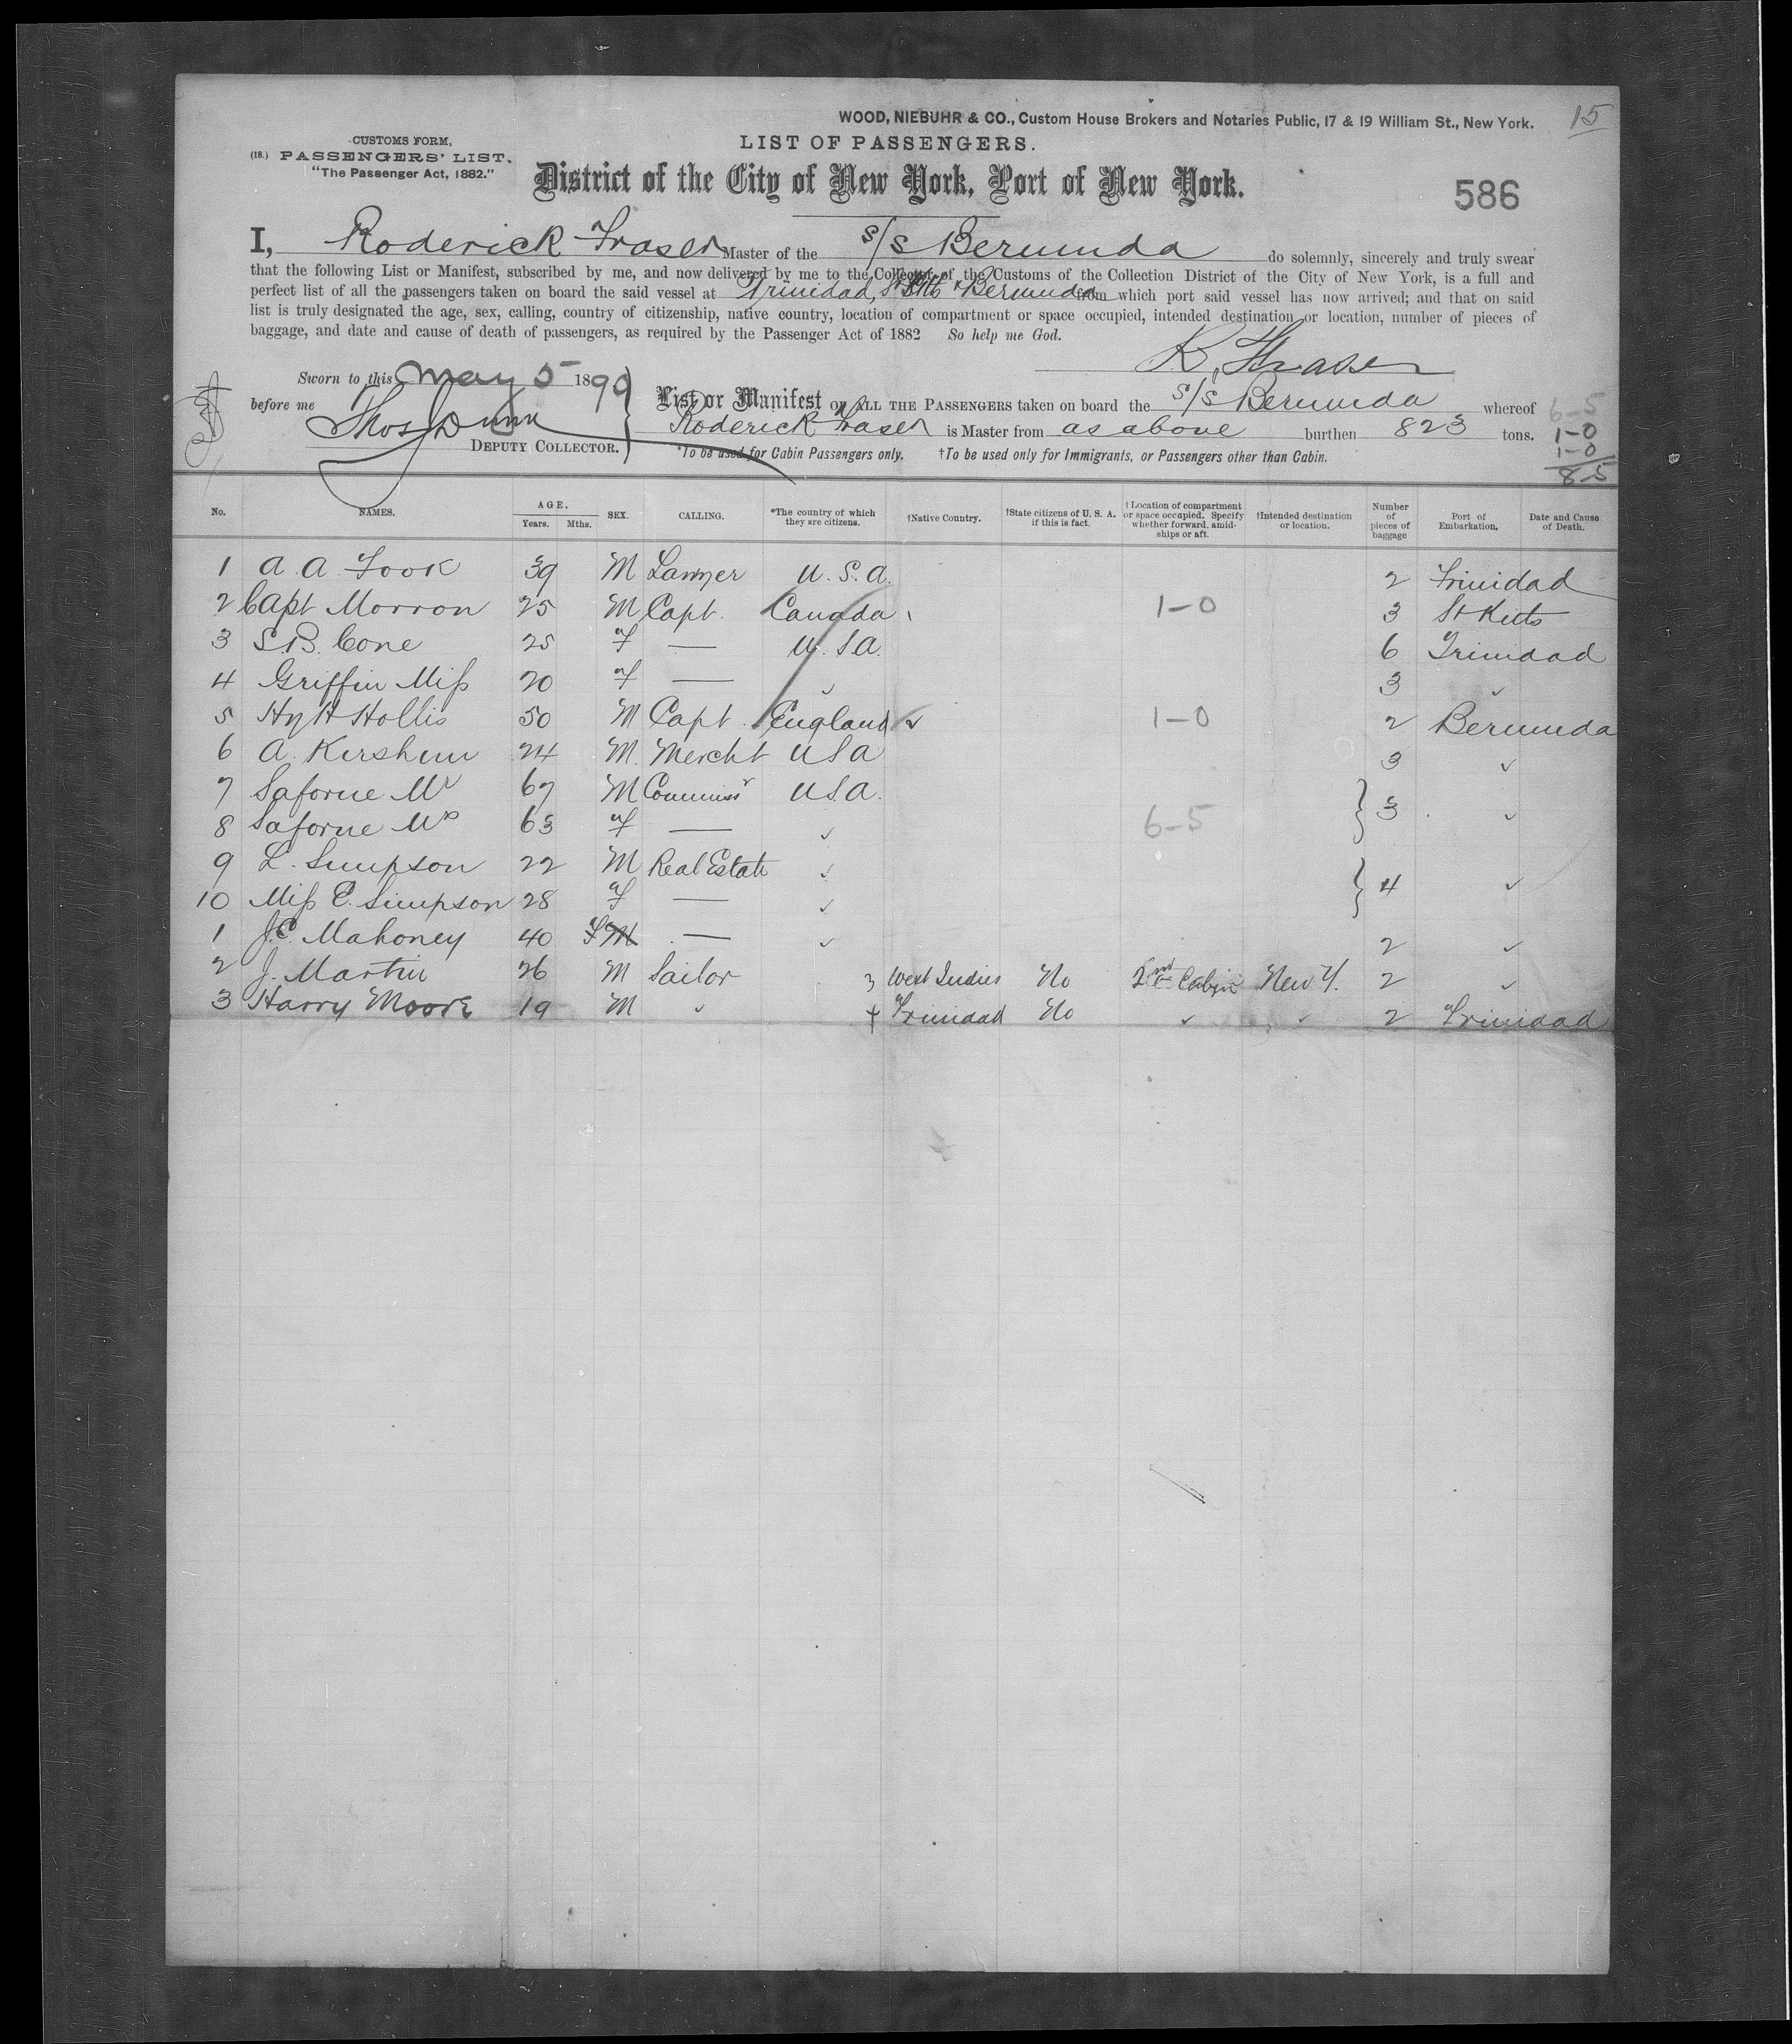 WOOD, NIEBUHR & CO., Custom House Brokers and Notaries Public, 17 & 19 William St., New York. 15
CUSTOMS FORM,
LIST OF PASSENGERS.
(18.) PASSENGERS' LIST.
"The Passenger Act, 1882."
District of the City of New York, Port of New York.
586
I, Roderick Fraser Master of the S/S Bermuda do solemnly, sincerely and truly swear
that the following List or Manifest, subscribed by me, and now delivered by me to the Collector of the Customs of the Collection District of the City of New York, is a full and
perfect list of all the passengers taken on board the said vessel at Trinidad, St Kitts & Bermuda from which port said vessel has now arrived; and that on said
list is truly designated the age, sex, calling, country of citizenship, native country, location of compartment or space occupied, intended destination or location, number of pieces of
baggage, and date and cause of death of passengers, as required by the Passenger Act of 1882 So help me God.
R. Fraser
Sworn to this May 5 1890
before me Thos Dunn
DEPUTY COLLECTOR.
List or Manifest OF ALL THE PASSENGERS taken on board the S/S Bermuda whereof
Roderick Fraser is Master from as above burthen 823 tons.
*To be used for Cabin Passengers only. †To be used only for Immigrants, or Passengers other than Cabin.
6-5
1-0
1-0
8-5
No. NAMES. AGE. Years. Mths. SEX. CALLING. *The country of which they are citizens. †Native Country. †State citizens of U. S. A. if this is fact. †Location of compartment or space occupied. Specify whether forward, amidships or aft. †Intended destination or location. Number of pieces of baggage Port of Embarkation. Date and Cause of Death.
1 A. A. Fook 39 M Lawyer U. S. A. 2 Trinidad
2 Capt Morron 25 M Capt. Canada 1-0 3 St Kitts
3 S. B. Cone 25 F — U. S A. 6 Trinidad
4 Griffin Miss 20 F — ✓ 3 ✓
5 Hy H Hollis 50 M Capt. England ✓ 1-0 2 Bermuda
6 A. Kershim 24 M. Mercht U S A 3 ✓
7 Saforne Mr 67 M Commissr U S. A. } 3 ✓
8 Saforne Mrs 63 F — ✓ 6-5
9 L. Simpson 22 M Real Estate ✓ } 4 ✓
10 Miss E. Simpson 28 F — ✓
1 J. C. Mahoney 40 F M — ✓ 2 ✓
2 J. Martin 26 M Sailor 3 West Indies No 2nd Cabin New Y. 2 ✓
3 Harry Moore 19 M ✓ Trinidad No ✓ ✓ 2 Trinidad